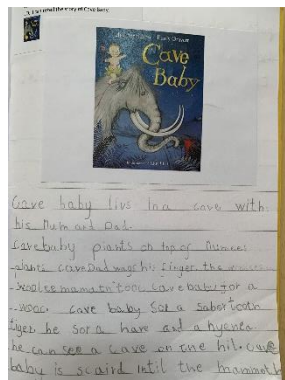 Cave
Baby
Cave baby livs in a cove with
his Mum and Dad.
Cavebaby piants on top of Mumes
plants cave Dad wags his finger. the
woolee mamatn tooc Cave baby for a
cave baby Sor a saber tooth
tiyer he sor a hare and a hyenta
he can see a cave on the hil. cave
baby is scaird intil the mammoth